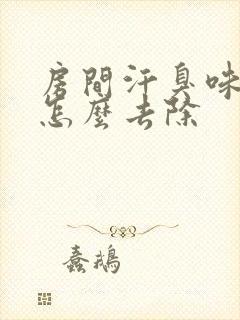 房間汗臭味
怎麼去除
蠢鵝